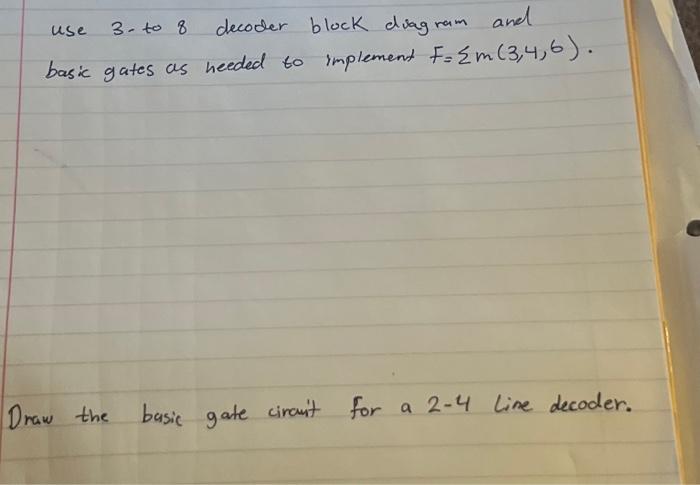 use 3-to 8 decoder block diagram and
basic gates as needed to implement F=Σm(3,4,6).
Draw the basic gate circuit for a 2-4 line decoder.